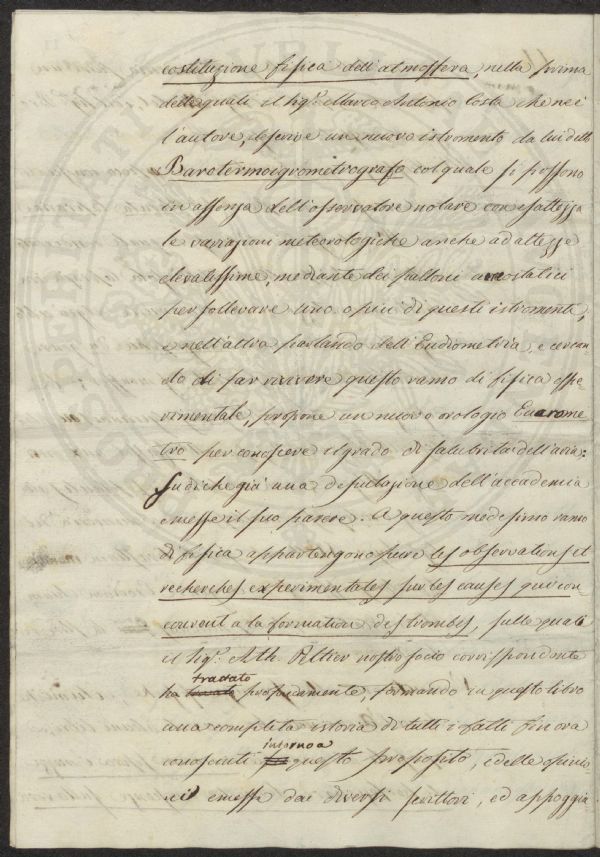 costituzione fisica dell'atmosfera, nella prima
delle quali il Sigr. Marco Antonio Costa che ne è
l'autore, descrive un nuovo istromento da lui detto
Barotermoigrometrografo col quale si possono
in assenza dell'osservatore notare con esattezza
le variazioni meteorologiche anche ad altezze
elevatissime, mediante dei palloni areostatici
per sollevare uno o più di questi istromenti,
e nell'altra parlando dell'Eudiometria, e cercan
do di far rivivere questo ramo di fisica spe
rimentale, propone un nuovo orologio Euarome
tro per conoscere il grado di salubrità dell'aria:
su di che già una deputazione dell'accademia
emesse il suo parere. A questo medesimo ramo
di fisica appartengono pure les observations et
recherches experimentales sur les causes qui con
courent a la formation des trombes, sulle quali
il Sigr. Ath. Peltier nostro socio corrispondente
trattato
ha profondamente, formando in questo libro
una completa istoria di tutti i fatti finora
intorno a
conosciuti questo proposito, e delle opinio
ni emesse dai diversi scrittori, ed appoggia